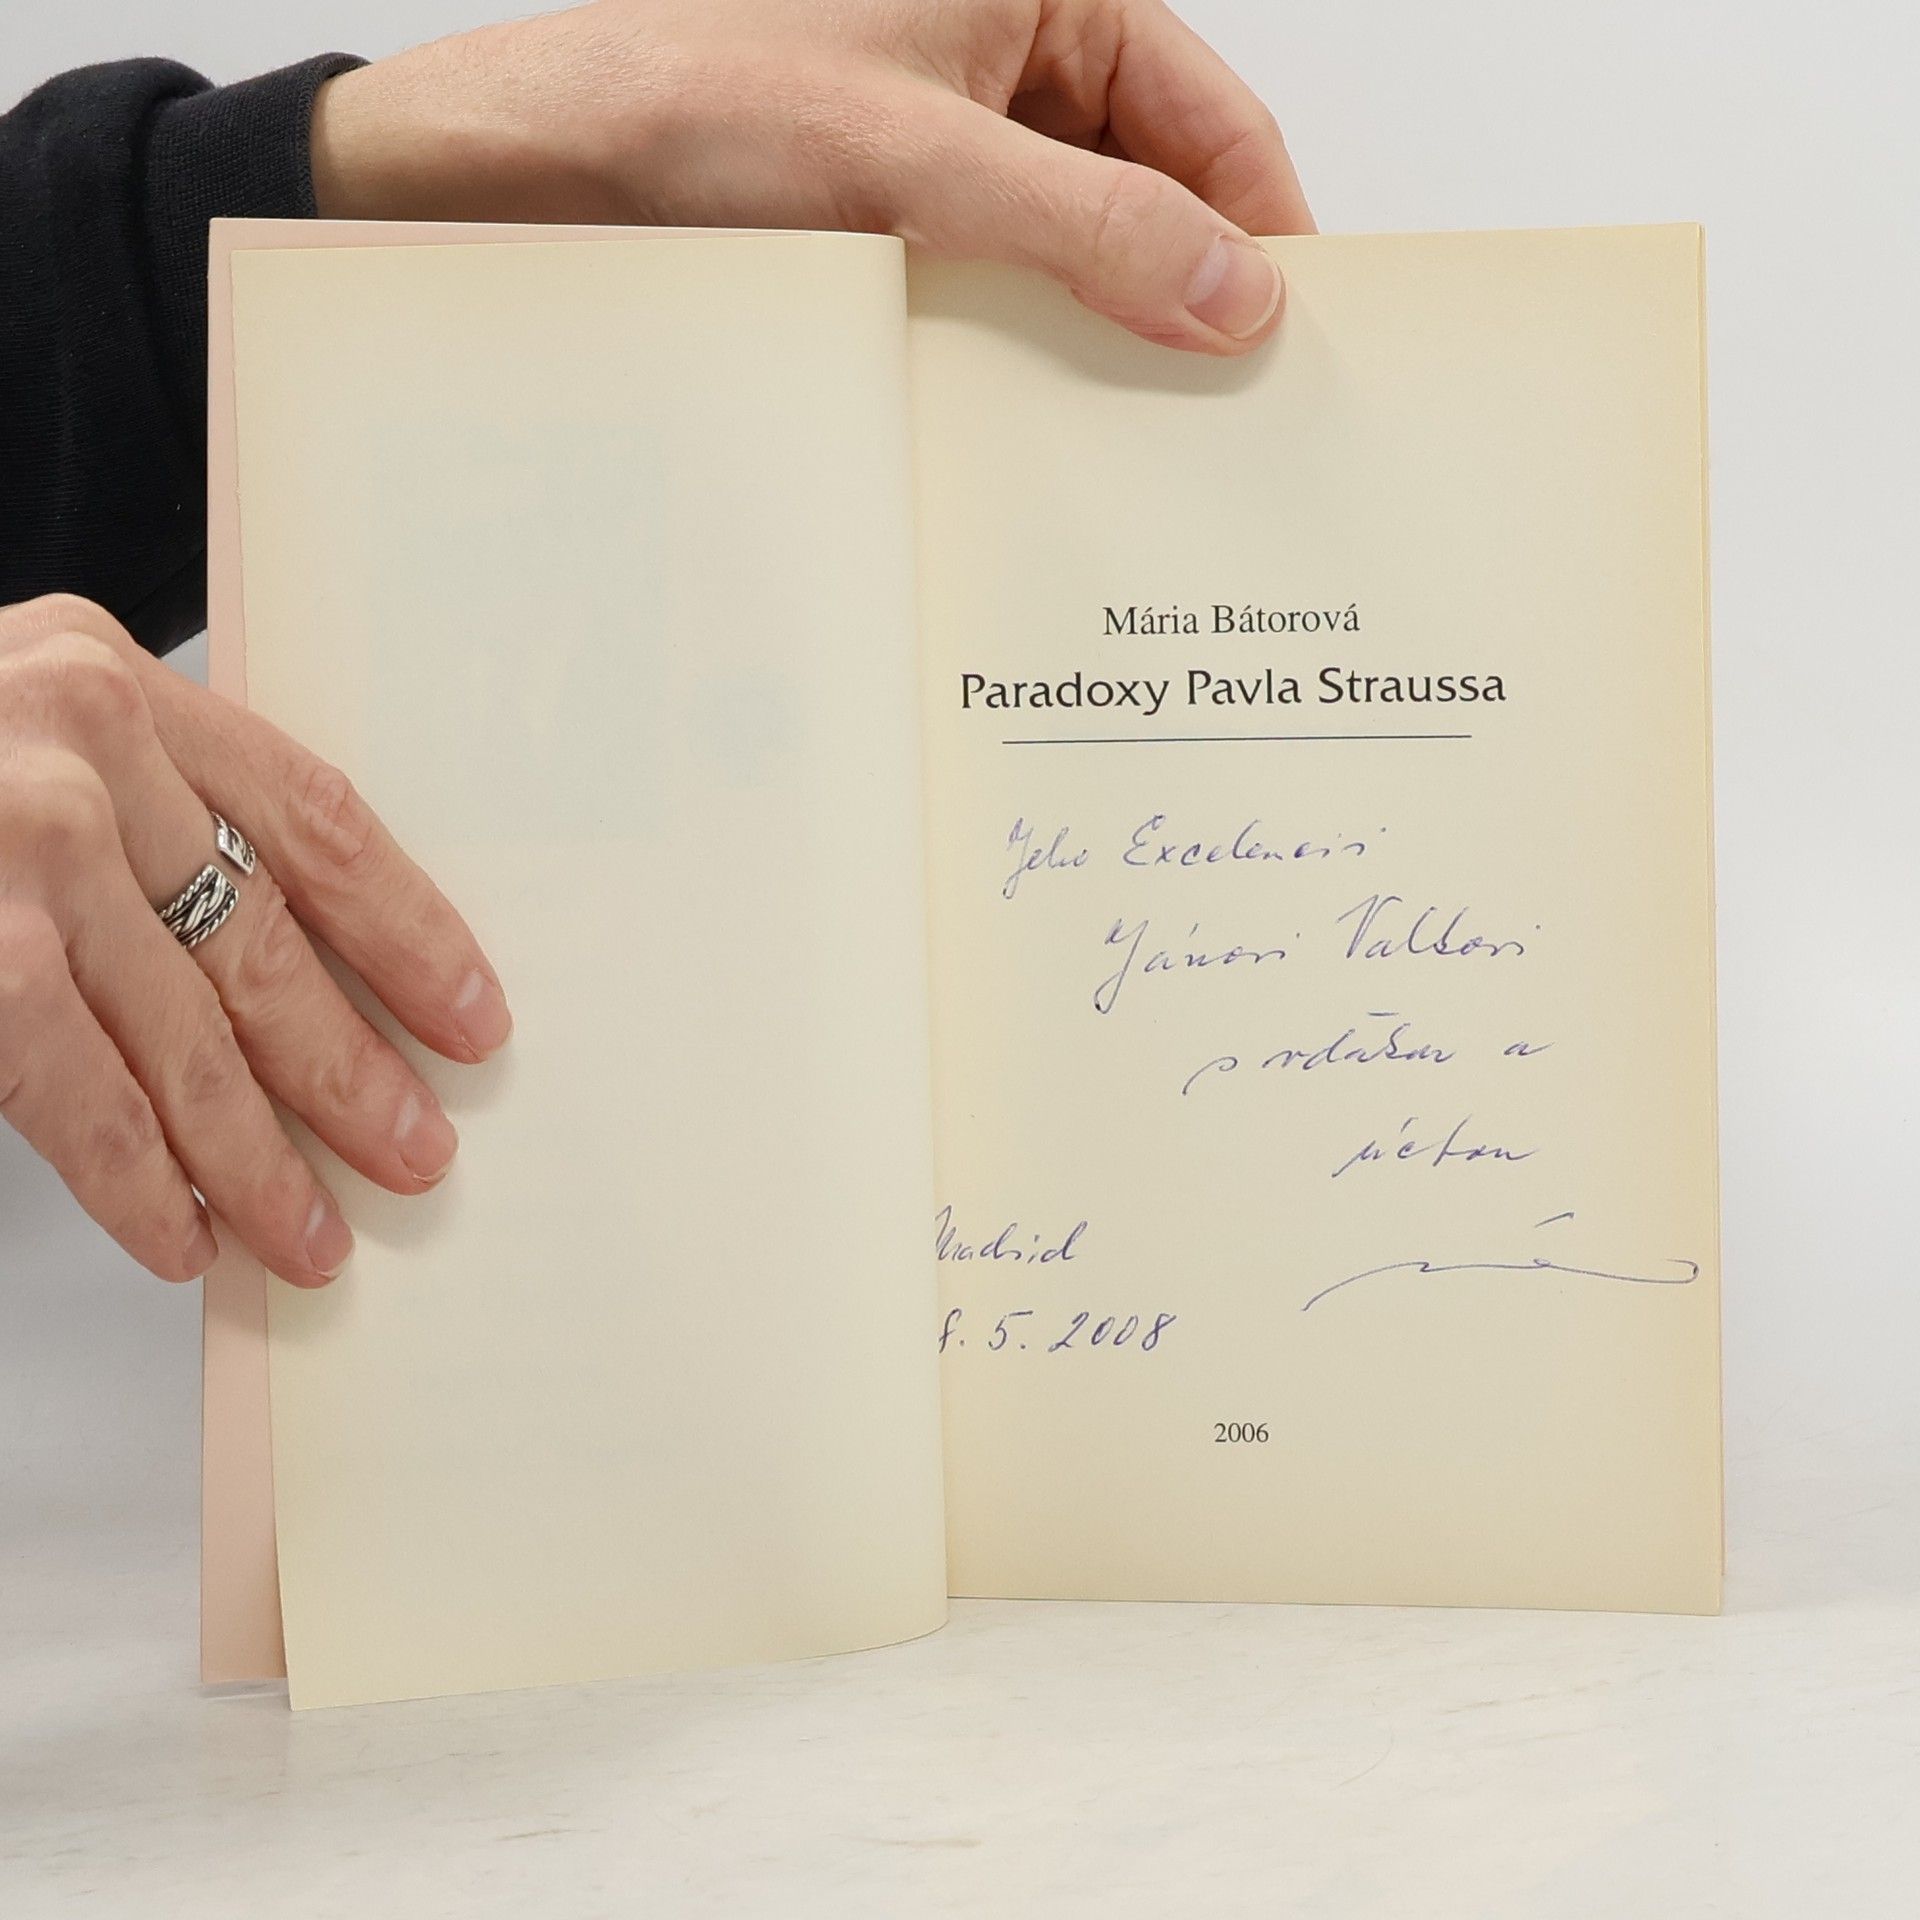 Mária Bátorová
Paradoxy Pavla Straussa
Jeho Excelencii
Jánovi Valkovi
s vďakou a
úctou
Madrid
8. 5. 2008
2006